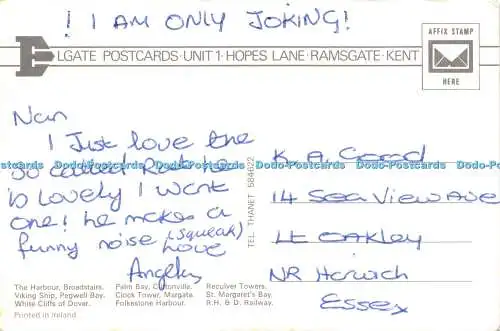 ! I AM ONLY JOKING!
ELGATE POSTCARDS · UNIT 1 · HOPES LANE · RAMSGATE · KENT
AFFIX STAMP
HERE
Nan
I Just love the
so called Rat he
is lovely I want
one! he makes a
funny noise (squeak)
love
Angela
TEL. THANET 584622
K. A. Good
14 Sea View Ave
Lt OAKLEY
NR Harwich
Essex
The Harbour, Broadstairs.
Viking Ship, Pegwell Bay.
White Cliffs of Dover.
Palm Bay, Cliftonville.
Clock Tower, Margate.
Folkestone Harbour.
Reculver Towers.
St. Margaret's Bay.
R.H. & D. Railway.
Printed in Ireland
Dodo-Postcards Dodo-Postcards Dodo-Postcards Dodo-Postcards Dodo-Postcards